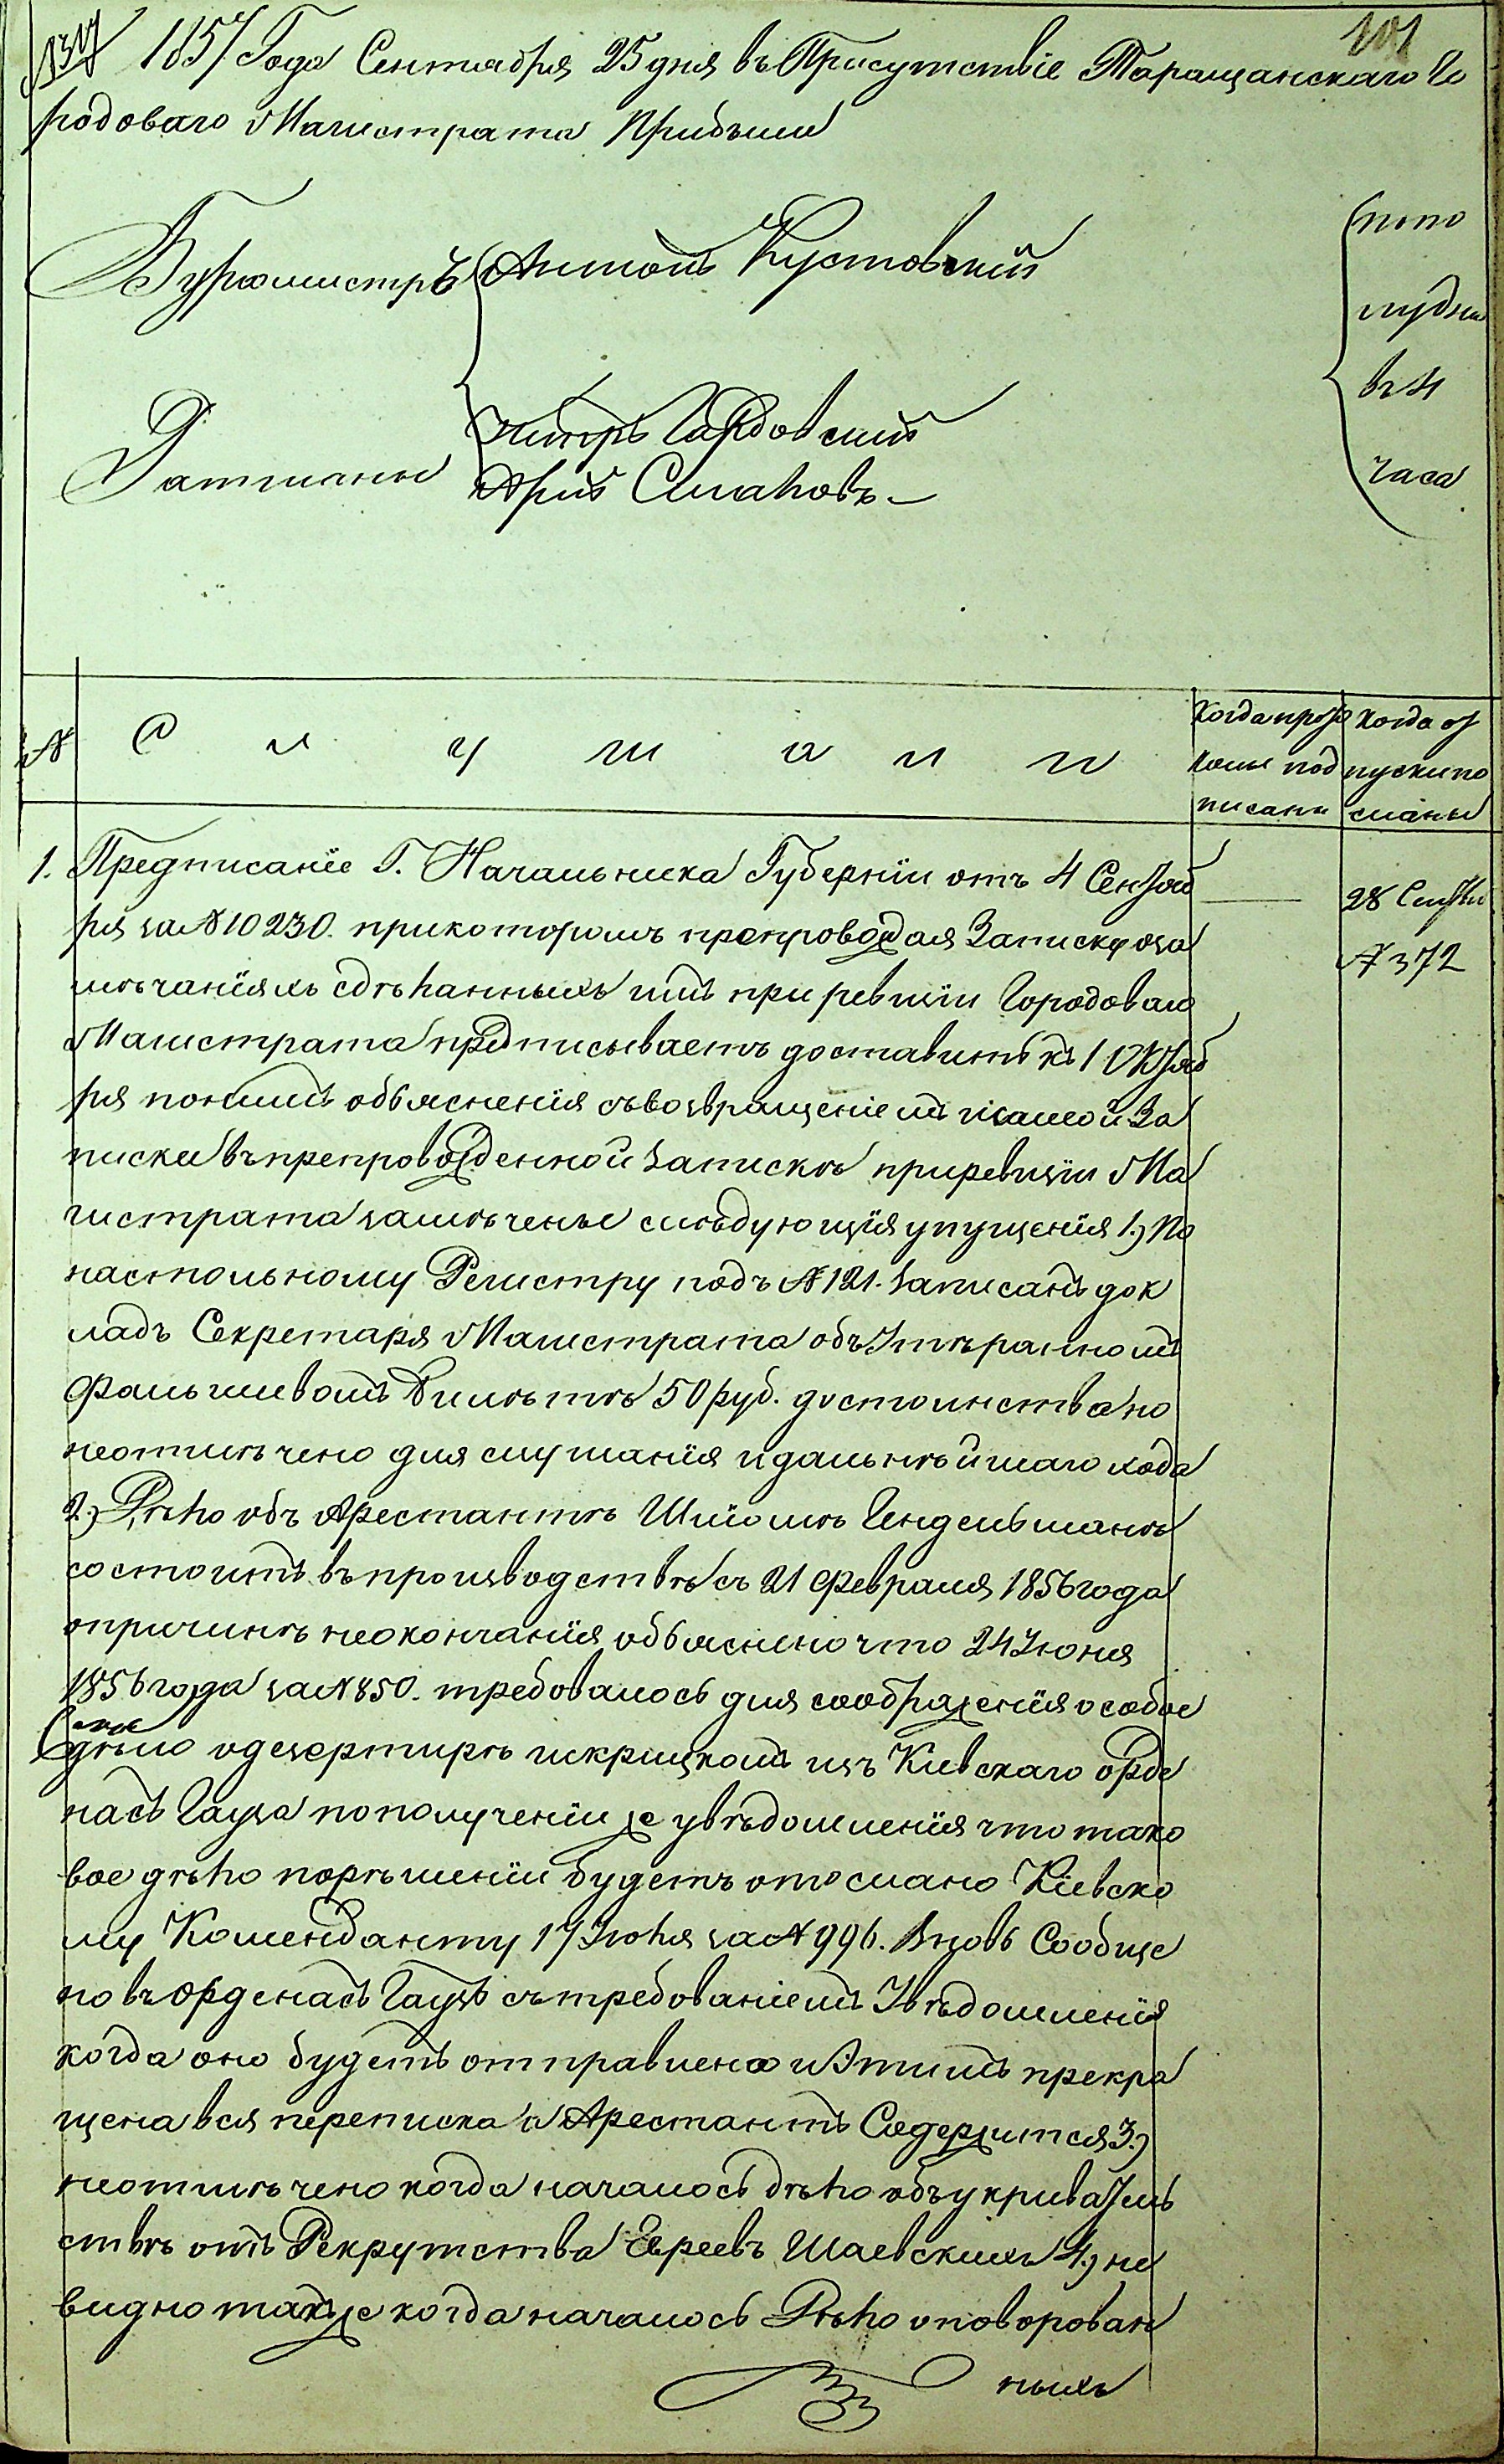 101
№ 317 1857 Года Сентября 25 дня въ Присутствіе Таращанскаго Го
родоваго Магистрата Прибыли
Бургомистръ Антонъ Кустовскій
Ратманы Петръ Гардовскій
Арій Смаковъ
по по
лудни
въ 4
часа
№ С л у ш а л и
Когда прото
колы под
писаны
Когда от
пуски по
сланы
1. Предписаніе Г. Начальника Губерніи отъ 4 Сентяб
ря за № 10230. при которомъ препровождая Записку о за
мѣчаніяхъ сдѣланныхъ имъ при ревизіи Городоваго
Магистрата предписываетъ доставить къ 1 Октяб
ря по нимъ объясненія съ возвращеніемъ и самой За
писки въ препровожденной запискѣ при ревизіи Ма
гистрата замѣчены слѣдующія упущенія 1.) По
настольному Регистру подъ № 121. записанъ док
ладъ Секретаря Магистрата объ утѣранномъ
фальшивомъ билѣтѣ 50 руб. достоинства но
неотмѣчено для слушанія и дальнѣйшаго хода
2.) Дѣло объ Арестантѣ Шліомѣ Гендельманѣ
состоитъ въ производствѣ съ 21 Февраля 1856 года
о причинѣ неокончанія объяснено что 24 Іюня
1856 года за № 850. требовалось для соображенія особое
дѣло о дезертирѣ изъ Кіевскаго Орде
насъ Гауза по полученіи же увѣдомленія что тако
вое дѣло по рѣшеніи будетъ отослано Кіевско
му Коменданту 17 Іюля за № 996. Вновь Сообще
но въ Орденасъ Гаузъ съ требованіемъ Увѣдомленія
когда оно будетъ отправлено и Этимъ прекра
щена вся переписка а Арестантъ Содержится 3.)
неотмѣчено когда началось дѣло объ укриватель
ствѣ отъ Рекрутства Евреевъ Шаевскихъ 4.) не
видно также когда началось Дѣло о поворован
ныхъ
28 Сентяб
№ 372